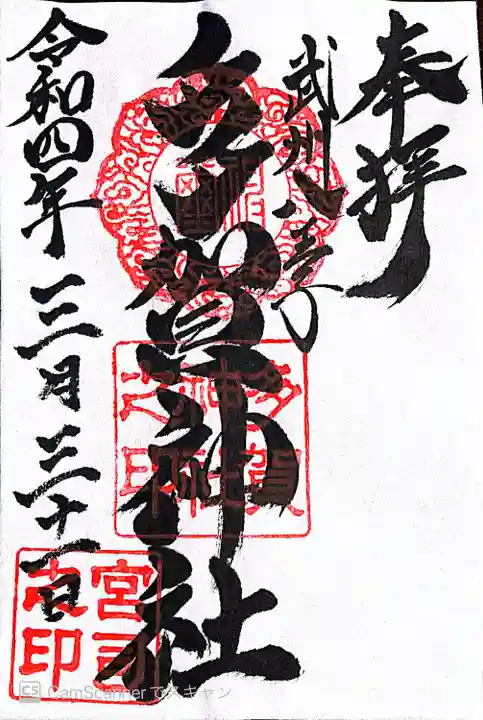 奉拝
武州八王子
多賀神社
令和四年三月三十一日
多賀
神社
之印
宮司
之印
CS CamScanner でスキャン